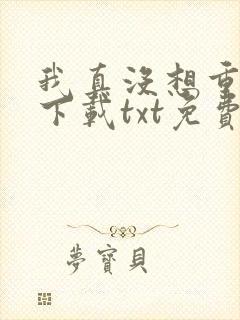 我真沒想重
下載txt免費
夢寶貝